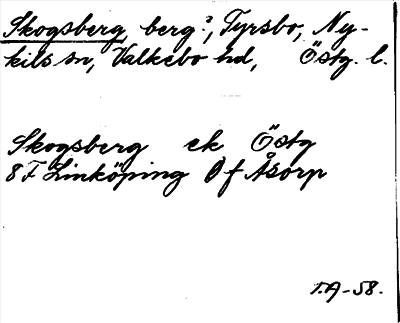 Skogsberg, berg?, Tyrsbo, Ny-
kils sn, Valkebo hd, Östg. l.
Skogsberg ek Östg
8F Linköping Ø f Åsorp
T.A-58.